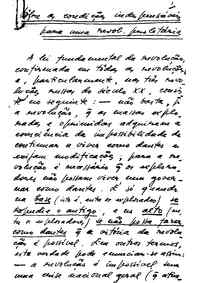 Sobre as condições indispensáveis
para uma revol. proletária
A lei fundamental da revolução,
confirmada em todas as revoluções
e, particularmente, nas três revo-
luções russas do século XX, consis-
te no seguinte: — não basta, p.ª
a revolução, q. as massas explo-
radas e oprimidas adquiram a
consciência da impossibilidade de
continuar a viver como dantes e
exijam modificações, para a re-
volução é necessário q. os explora-
dores não possam viver nem gover-
nar como dantes. É só quando
na base (isto é, entre os explorados) se
repudia o antigo, e em alto (en-
tre os exploradores) se não possa fazer
como dantes q. a vitória da revolu-
ção é possível. Em outros termos,
esta verdade pode enunciar-se assim:
— a revolução é impossível sem
uma crise nacional geral (q. afecte